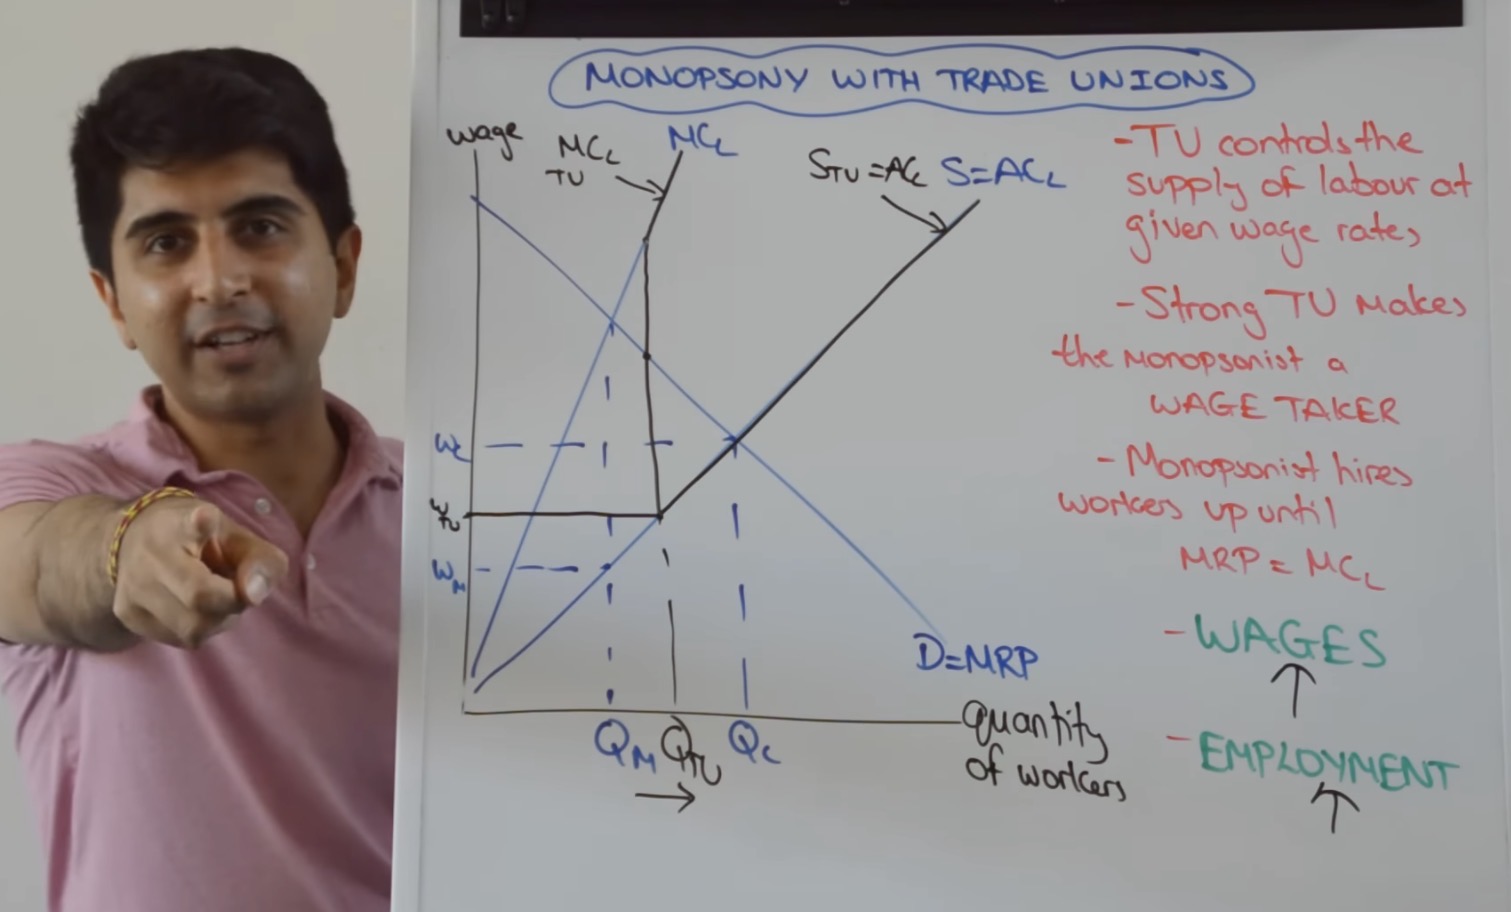 MONOPSONY WITH TRADE UNIONS
wage
MCL
TU
MCL
STU=ACL
S=ACL
WC
WTU
WM
D=MRP
QM
QTU
QC
quantity
of workers
-TU controls the
supply of labour at
given wage rates
-Strong TU makes
the monopsonist a
WAGE TAKER
-Monopsonist hires
workers up until
MRP = MCL
-WAGES
-EMPLOYMENT